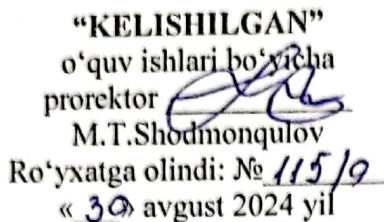 “KELISHILGAN”
o‘quv ishlari bo‘yicha
prorektor
M.T.Shodmonqulov
Ro‘yxatga olindi: № 115/9
« 30» avgust 2024 yil